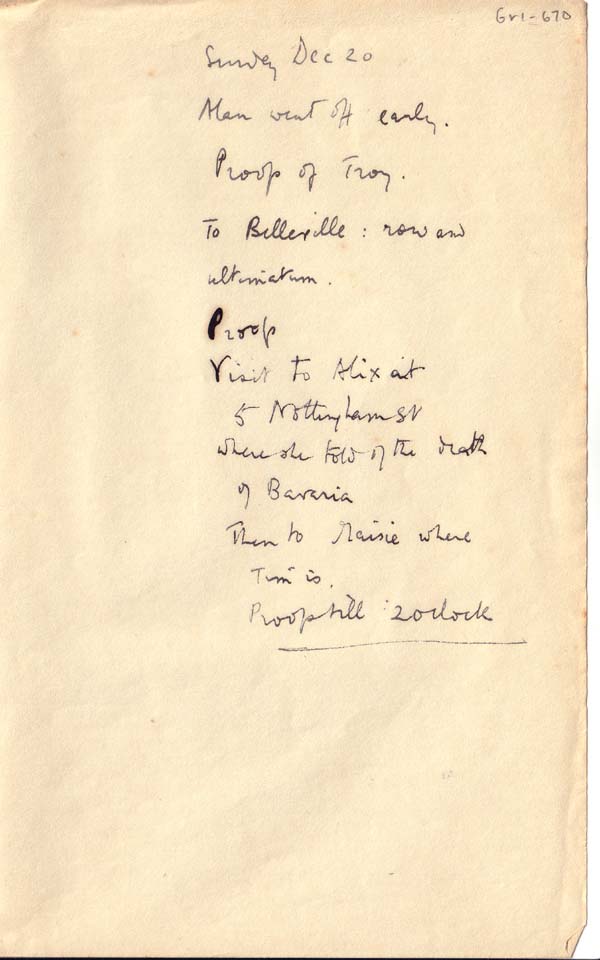 Gr1-670
Sunday Dec 20
Alan went off early.
Proofs of Troy.
To Belleville : row and
ultimatum.
Proofs
Visit to Alix at
5 Nottingham St
where she told of the death
of Bavaria
Then to Maisie where
Tim is.
Proofs till 2 oclock